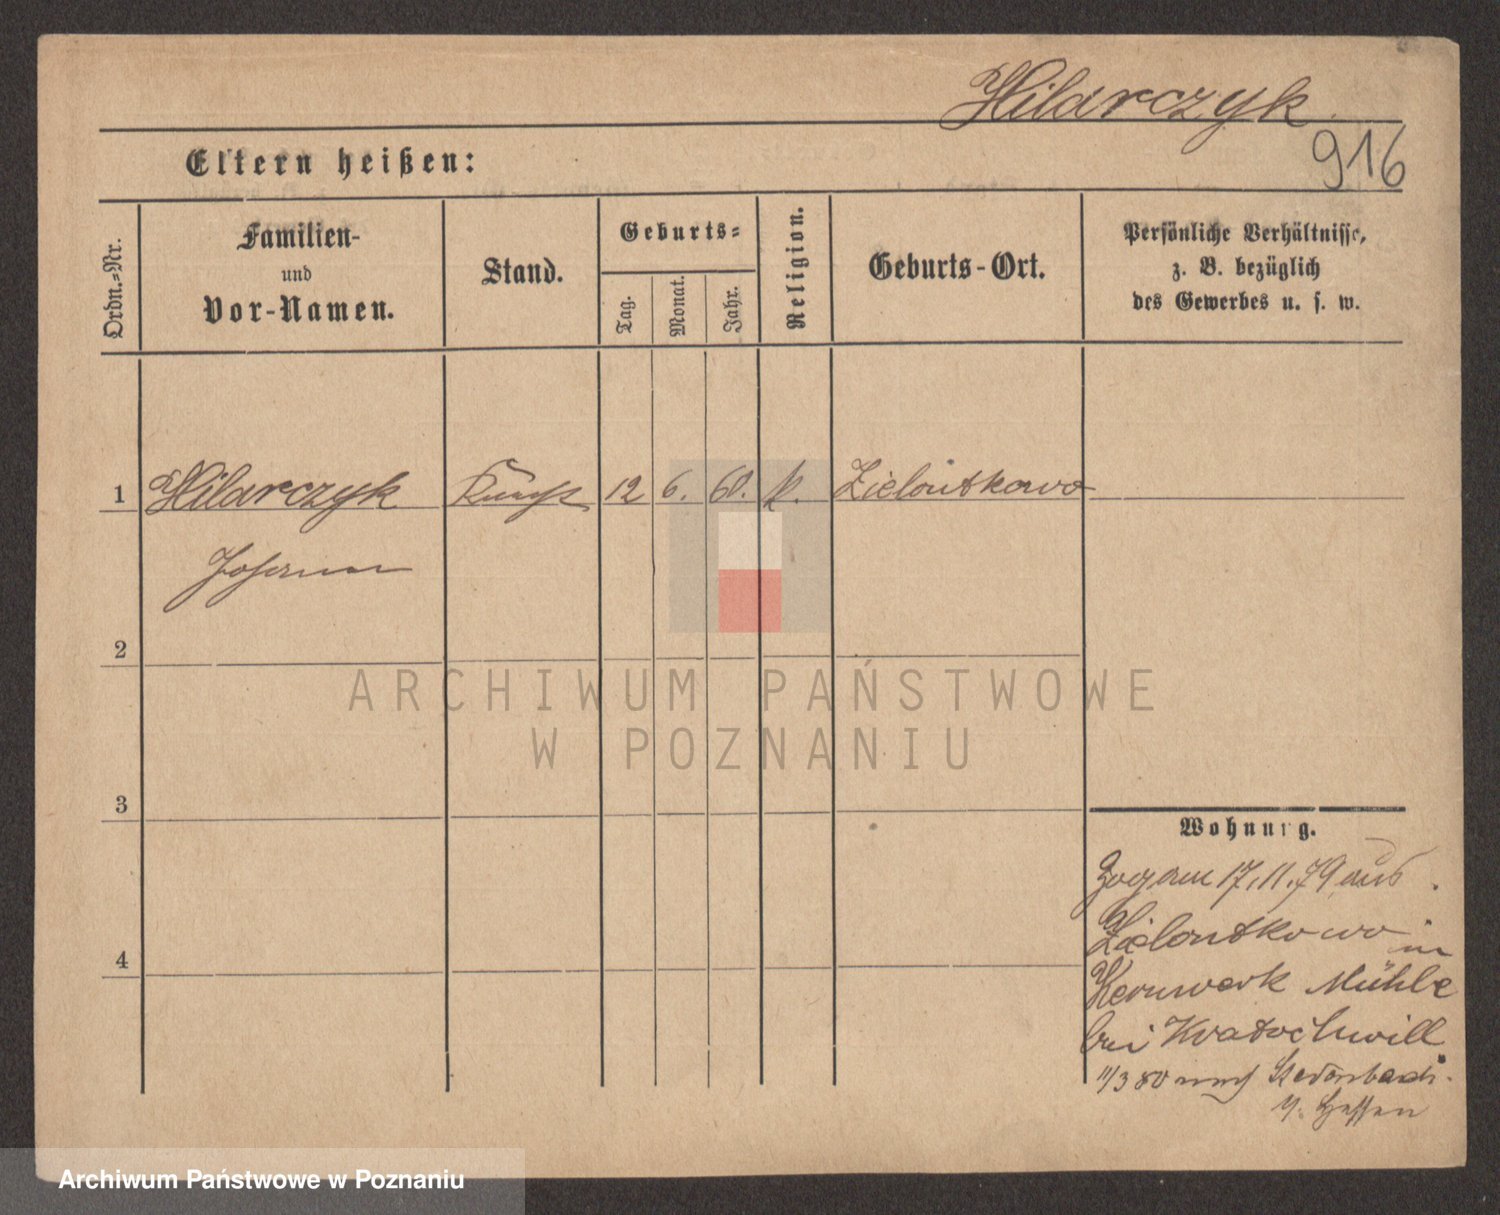 Hilarczyk.
916
Eltern heißen:
Ordn.-Nr.
Familien-
und
Vor-Namen.
Stand.
Geburts-
Tag.
Monat.
Jahr.
Religion.
Geburts-Ort.
Persönliche Verhältnisse,
z. B. bezüglich
des Gewerbes u. s. w.
1 Hilarczyk Knecht 12 6. 60. k. Zielontkowo
Johann
2
3
4
Wohnung.
Zog am 17.11.79 aus
Zielontkowo in
Kernwerk Mühle
bei Kratochwill
11/3 80 nach
ARCHIWUM PAŃSTWOWE
W POZNANIU
Archiwum Państwowe w Poznaniu